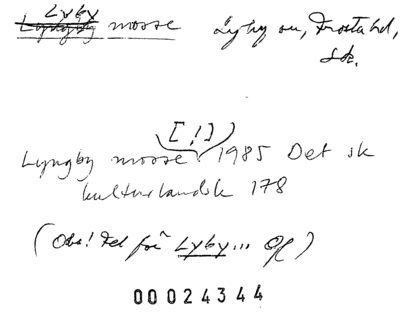 Lyby
Lyngby mosse Lyby sn, Frosta hd,
Sk.
[!]
Lyngby mosse 1985 Det sk
kulturlandsk 178
(Obs! Fel för Lyby... )
00024344